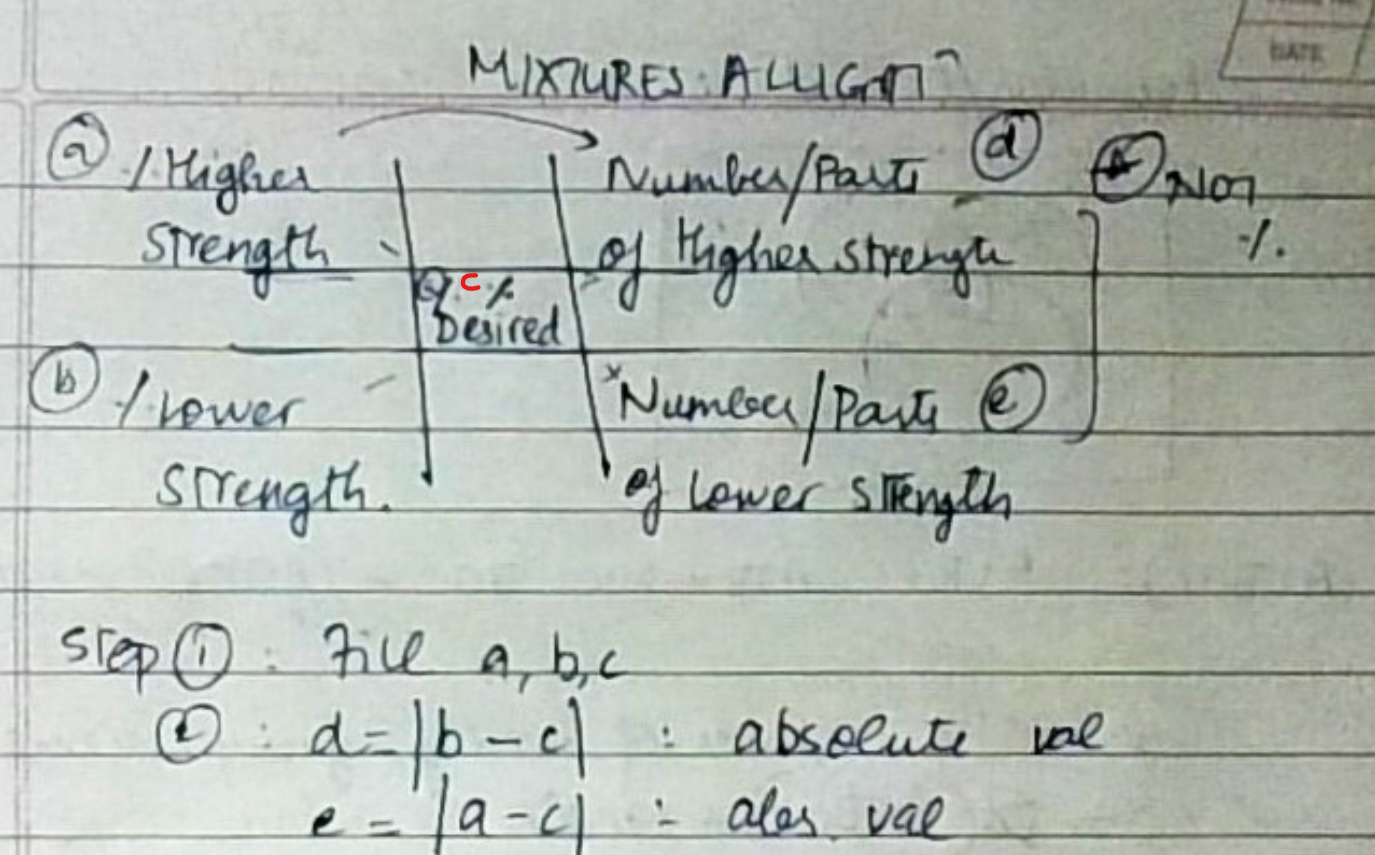 DATE
MIXTURES: ALLIGATn
a / Higher Strength
Number/Parts of Higher Strength d
Non %.
c % Desired
b / Lower Strength.
*Number/Parts e of Lower Strength
Step 1 : Fill a, b, c
2 : d = |b - c| : absolute val
e = |a - c| : abs. val